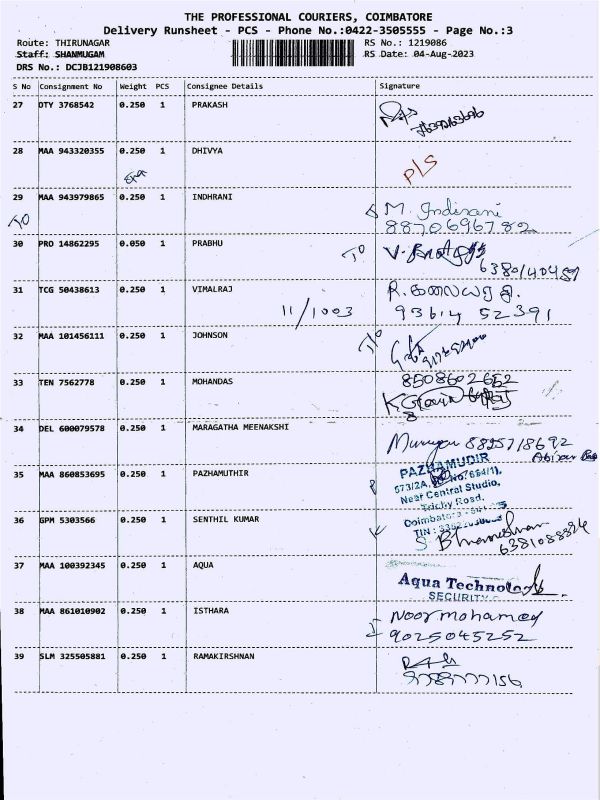 THE PROFESSIONAL COURIERS, COIMBATORE
Delivery Runsheet - PCS - Phone No.:0422-3505555 - Page No.:3
Route: THIRUNAGAR RS No.: 1219086
Staff: SHANMUGAM RS Date: 04-Aug-2023
DRS No.: DCJB121908603
S No Consignment No Weight PCS Consignee Details Signature
27 DTY 3768542 0.250 1 PRAKASH
28 MAA 943320355 0.250 1 DHIVYA P/S
29 MAA 943979865 0.250 1 INDHRANI M. Indirani
8870696782
TO
30 PRD 14862295 0.050 1 PRABHU TO
6380140489
31 TCG 50438613 0.250 1 VIMALRAJ
11/1003 93614 52391
32 MAA 101456111 0.250 1 JOHNSON TO
33 TEN 7562778 0.250 1 MOHANDAS 8508602652
34 DEL 600079578 0.250 1 MARAGATHA MEENAKSHI
Murugan 8825718692
35 MAA 860853695 0.250 1 PAZHAMUTHIR PAZHAMUDIR
573/2A,
Near Central Studio,
Trichy Road,
36 GPM 5303566 0.250 1 SENTHIL KUMAR Coimbatore
TIN :
S Bhuvaneshwaran
6381088824
37 MAA 100392345 0.250 1 AQUA
Aqua Technology
SECURITY
38 MAA 861010902 0.250 1 ISTHARA Noormohamed
9025045252
39 SLM 325505881 0.250 1 RAMAKIRSHNAN
9789777156